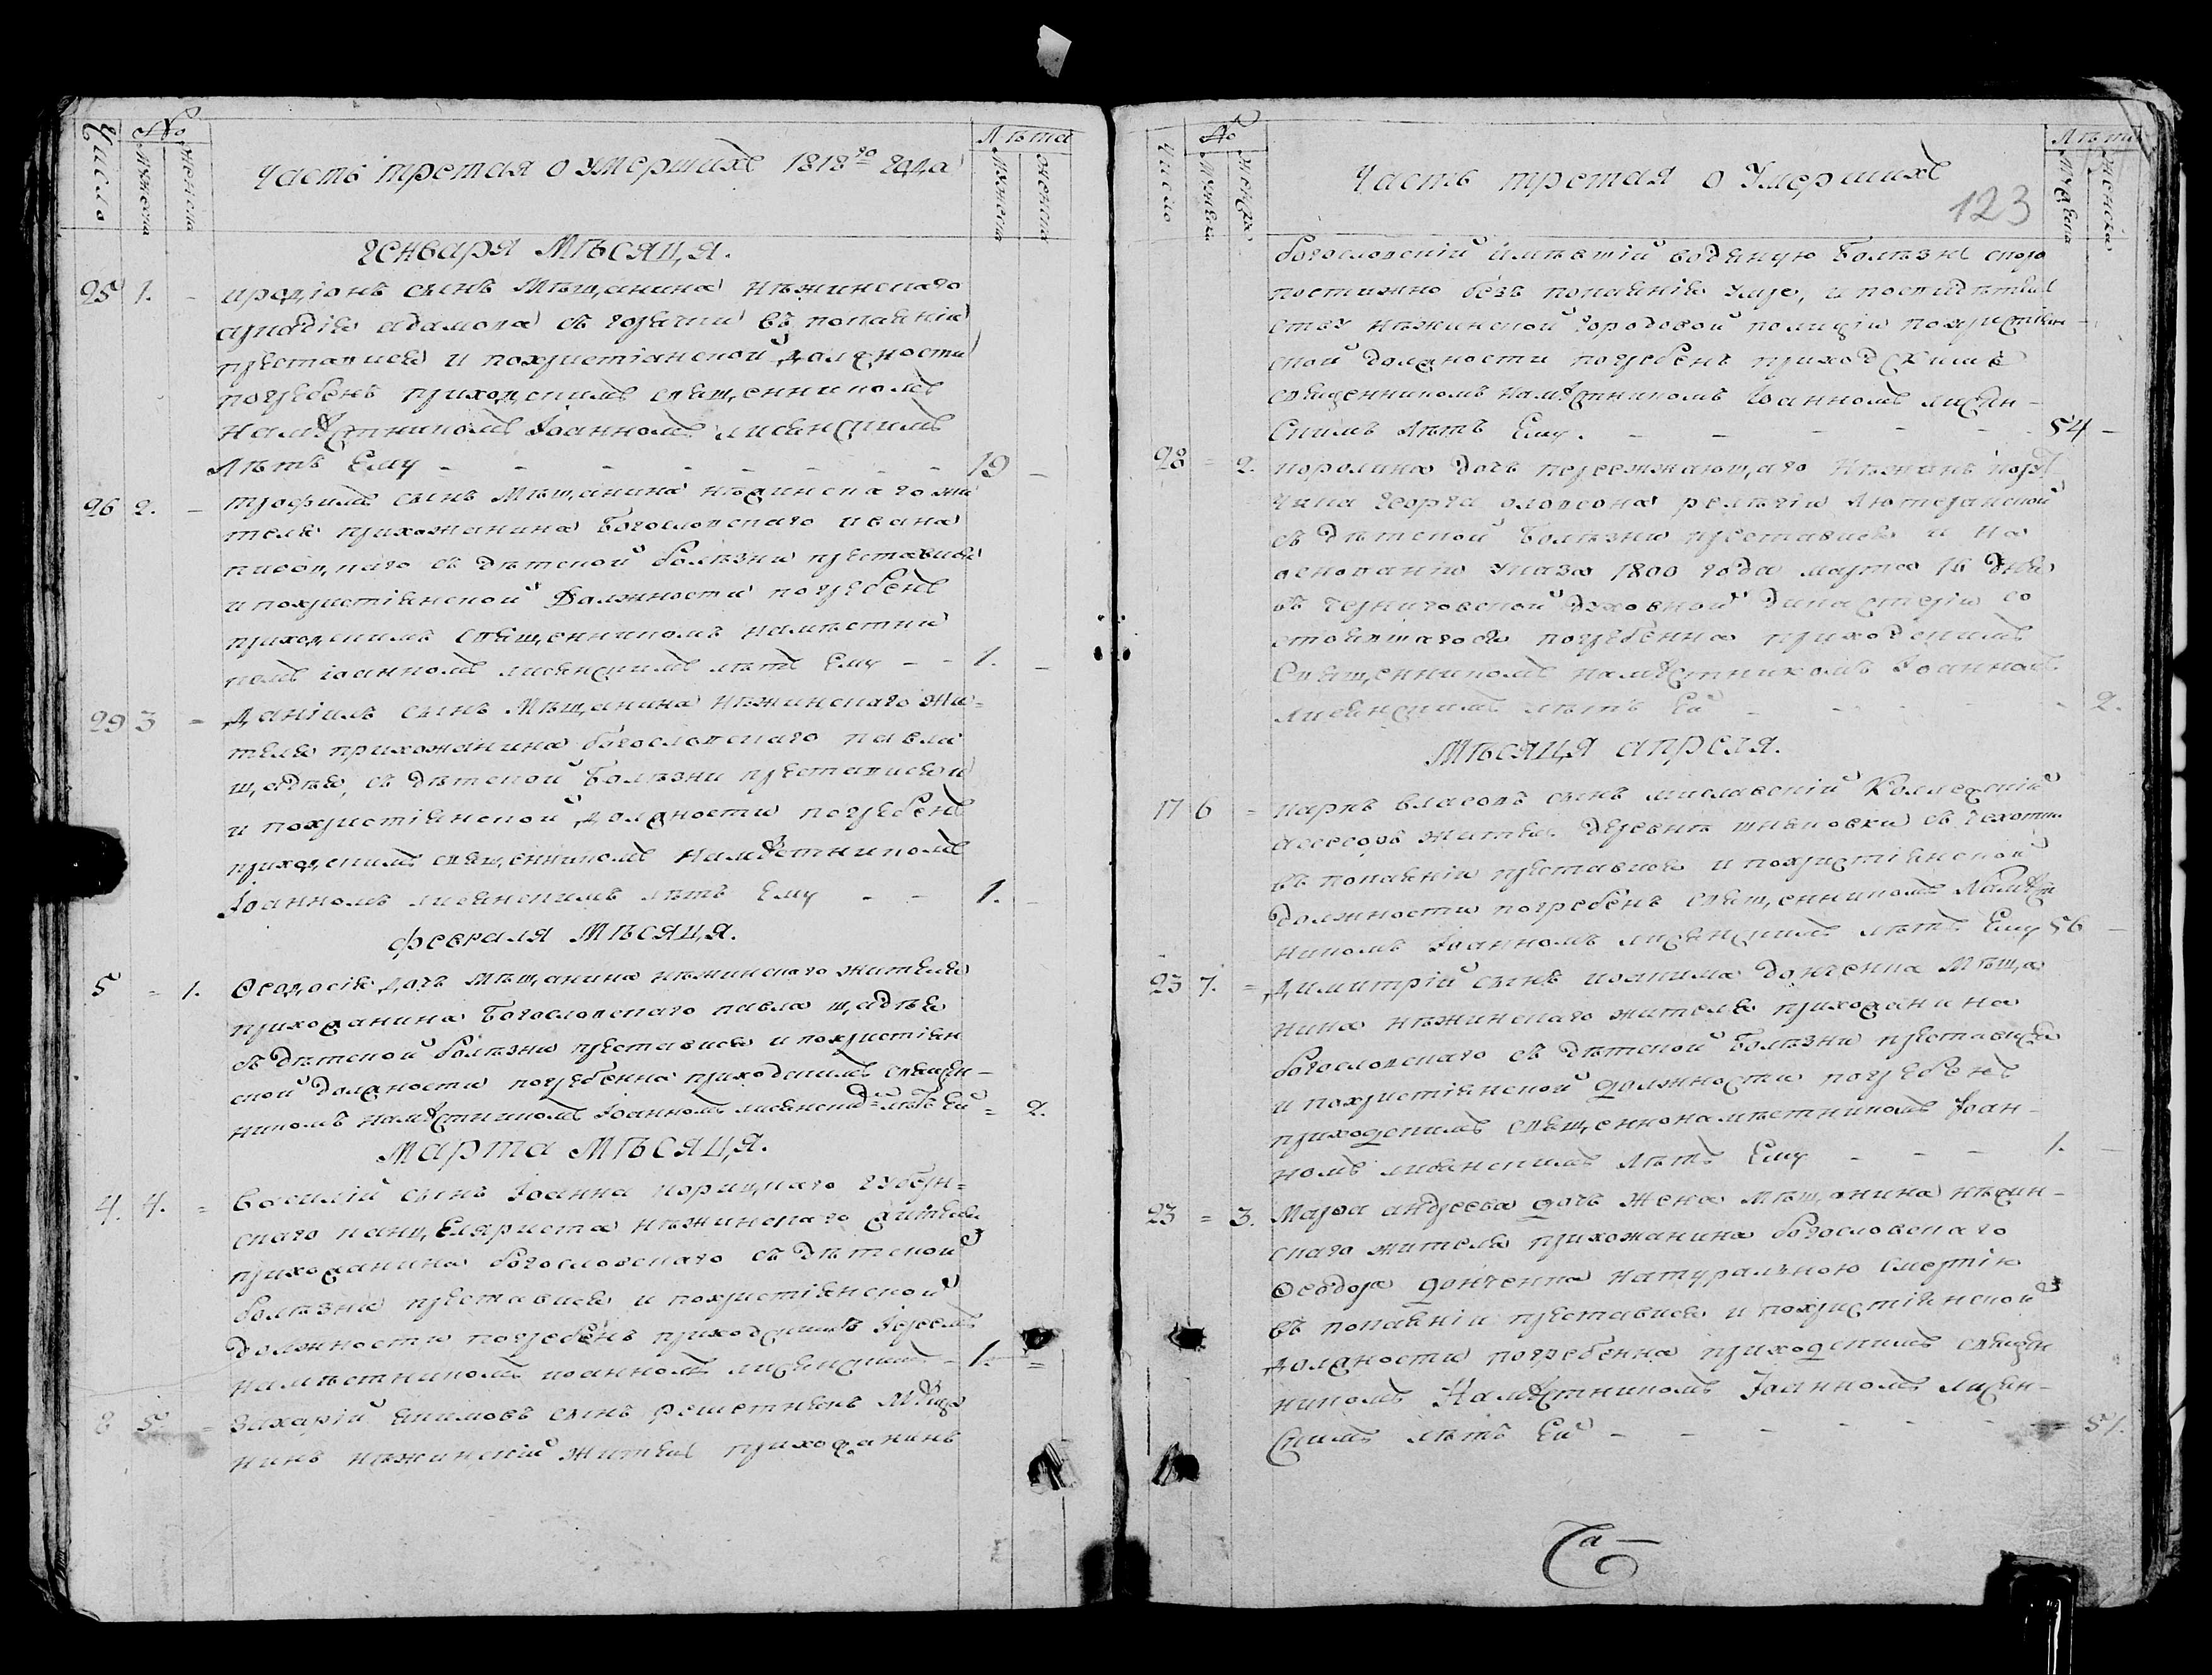 Число
№
Мужеска
Женска
Часть третая о умершихъ 1818го года
Лѣта
Мужеска
Женска
генваря мѣсяца.
25 1. - Иродіонъ сынъ мѣщанина нѣжинскаго
Адамова съ горячки въ покаяніи
преставися и похристіанской должности
погребенъ приходскимъ священникомъ
намѣстникомъ Іоанномъ лисянскимъ
Лѣтъ Ему - - - 19 -
26 2. - трофимъ сынъ мѣщанина нѣжинскаго жи
теля прихожанина Богословскаго ивана
съ дѣтской болѣзни преставися
и похристіянской Должности погребенъ
приходскимъ священникомъ намѣстни
комъ іоанномъ лисянскимъ лѣтъ Ему - - 1. -
29 3 = Даніилъ сынъ мѣщанина нѣжинскаго жи=
теля прихожанина богословскаго павла
съ дѣтской Болѣзни преставися
и похристіянской должности погребенъ
приходскимъ священникомъ намѣстникомъ
Іоанномъ лисянскимъ лѣтъ Ему - - 1. -
февраля мѣсяца.
5 = 1. Ѳеодосія дочь мѣщанина нѣжинскаго жителя
прихожанина Богословскаго павла
съ дѣтской болѣзни преставися и похристіян
ской должности погребенна приходскимъ священ-
никомъ намѣстникомъ Іоанномъ лисянскимъ лѣтъ Ей = 2.
марта мѣсяца.
4. 4. = Василій сынъ Іоанна Корицкаго губерн=
скаго канцеляриста нѣжинскаго жителя
прихожанина богословскаго съ дѣтской
болѣзни преставися и похристіянской
должности погребенъ приходскимъ Іереемъ
намѣстникомъ иоанномъ лисянскимъ - 1. =
8 5 = Захарій якимовъ сынъ решетнякъ мѣща
нинъ нѣжинскій житель прихожанинъ
Число
№
Мужеска
Женска
Часть третая о Умершихъ
123
Лѣта
Мужеска
Женска
богословскій имѣвшій водяную Болѣзнь скоро
постижно безъ покаянія умре, и посвидѣтель
ству нѣжинской городовой полиціи похристіян-
ской должности погребенъ приходскимъ
священникомъ намѣстникомъ Іоанномъ лисян-
скимъ лѣтъ Ему. - - - - - 54 -
28 = 2. Каролина дочь переежжающаго Нѣжинъ
Георга олопсона релѣгіи Лютеранской
съ дѣтской Болѣзни преставися и на
основаніи указа 1800 года марта 16 дня
въ черниговской духовной дикастеріи со
стоявшагося погребенна приходскимъ
Священникомъ намѣстникомъ Іоанномъ
Лисянскимъ лѣтъ Ей - - - - 2.
мѣсяца апреля.
17 6 = Каркъ власовъ сынъ миславскій Коллежскій
ассесоръ житель деревнѣ съ чехотки
въ покаяніи преставися и похристіянской
должности погребенъ священникомъ намѣст
никомъ Іоанномъ лисянскимъ лѣтъ Ему 56 -
23 7. = Димитрій сынъ иоакима донченка мѣща
нина нѣжинскаго жителя прихожанина
богословскаго съ дѣтской Болѣзни преставися
и похристіянской должности погребенъ
приходскимъ священнонамѣстникомъ Іоан-
номъ лисянскимъ лѣтъ Ему - - - 1. -
23 = 3. Марѳа андреева дочь жена мѣщанина нѣжин-
скаго жителя прихожанина богословскаго
Ѳеодора донченка натуральною смертію
въ покаяніи преставися и похристіянской
должности погребенна приходскимъ священ
никомъ Намѣстникомъ Іоанномъ лисян-
скимъ лѣтъ Ей - - - - = 57.